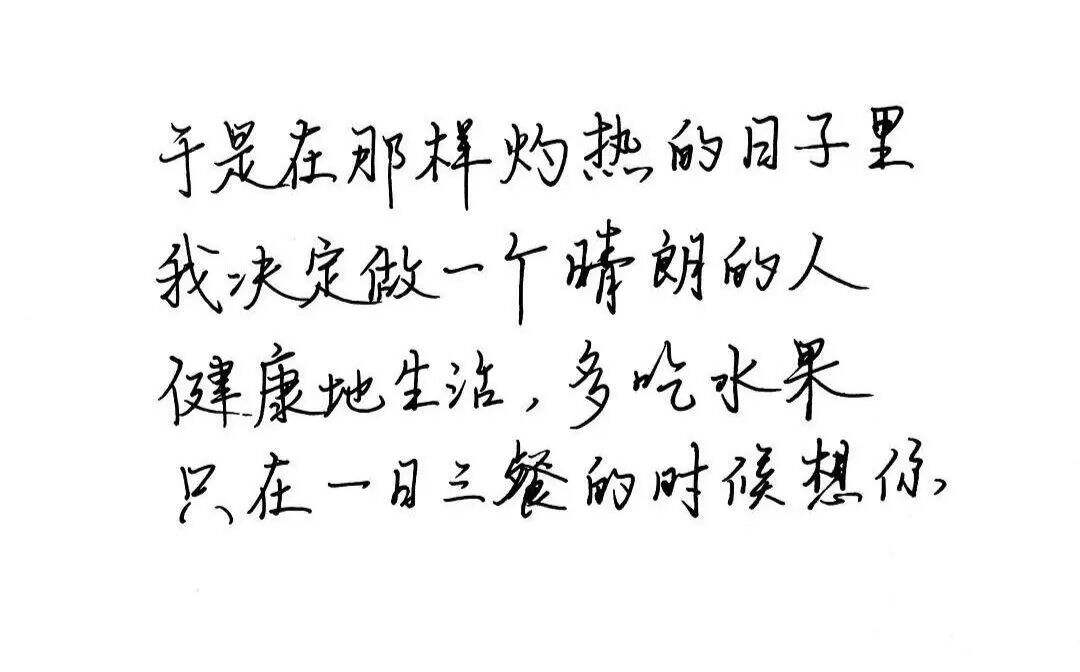 于是在那样灼热的日子里
我决定做一个晴朗的人
健康地生活，多吃水果
只在一日三餐的时候想你、